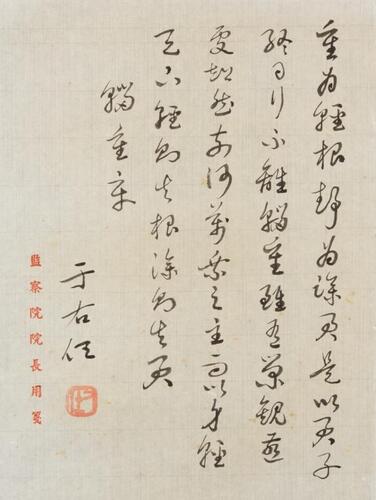 重為輕根靜為躁君是以君子
終日行不離輜重雖有榮觀燕
處超然奈何萬乘之主而以身輕
天下輕則失根躁則失君
輜重章
于右任
監察院院長用箋